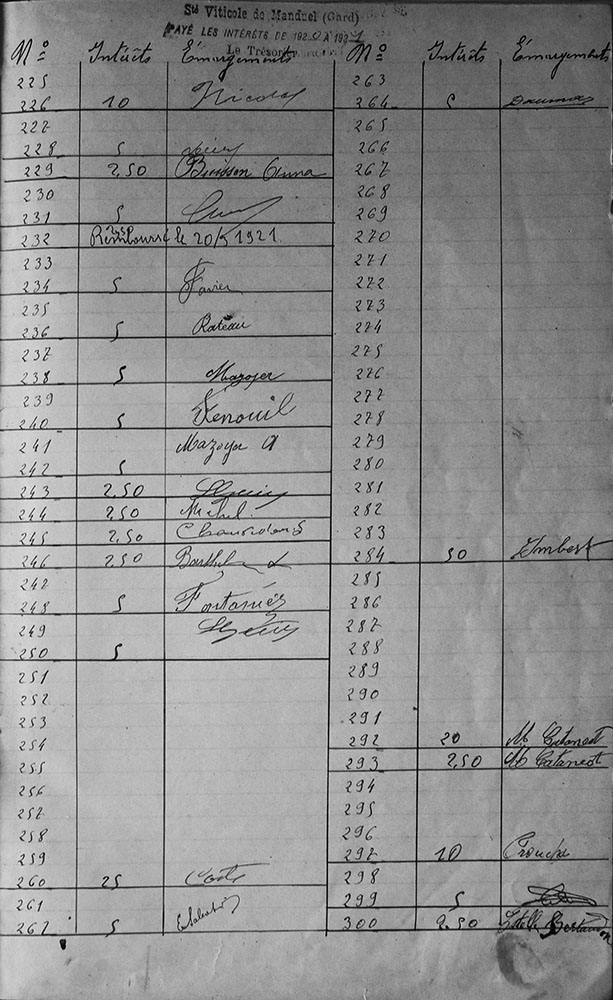 Sté Viticole de Manduel (Gard)
PAYÉ LES INTÉRÊTS DE 1920 A 1921
Le Trésorier
Nº Intérêts Émargements
225
226 10 Nicolas
227
228 5
229 2,50 Buisson Anna
230
231 5
232 Remboursé le 20/5 1921
233
234 5 Favier
235
236 5 Rateau
237
238 5 Mazoyer
239
240 5 Fenouil
241 Mazoyer A
242 5
243 2,50
244 2,50 Michel
245 2,50
246 2,50 Barthel
247
248 5 Fontanier
249
250 5
251
252
253
254
255
256
257
258
259
260 25 Coste
261
262 5
Nº Intérêts Émargements
263
264 5 Daumas
265
266
267
268
269
270
271
272
273
274
275
276
277
278
279
280
281
282
283
284 50 Imbert
285
286
287
288
289
290
291
292 20 M Catanest
293 2,50 M Catanest
294
295
296
297 10
298
299 5
300 2.50 Bertaudon